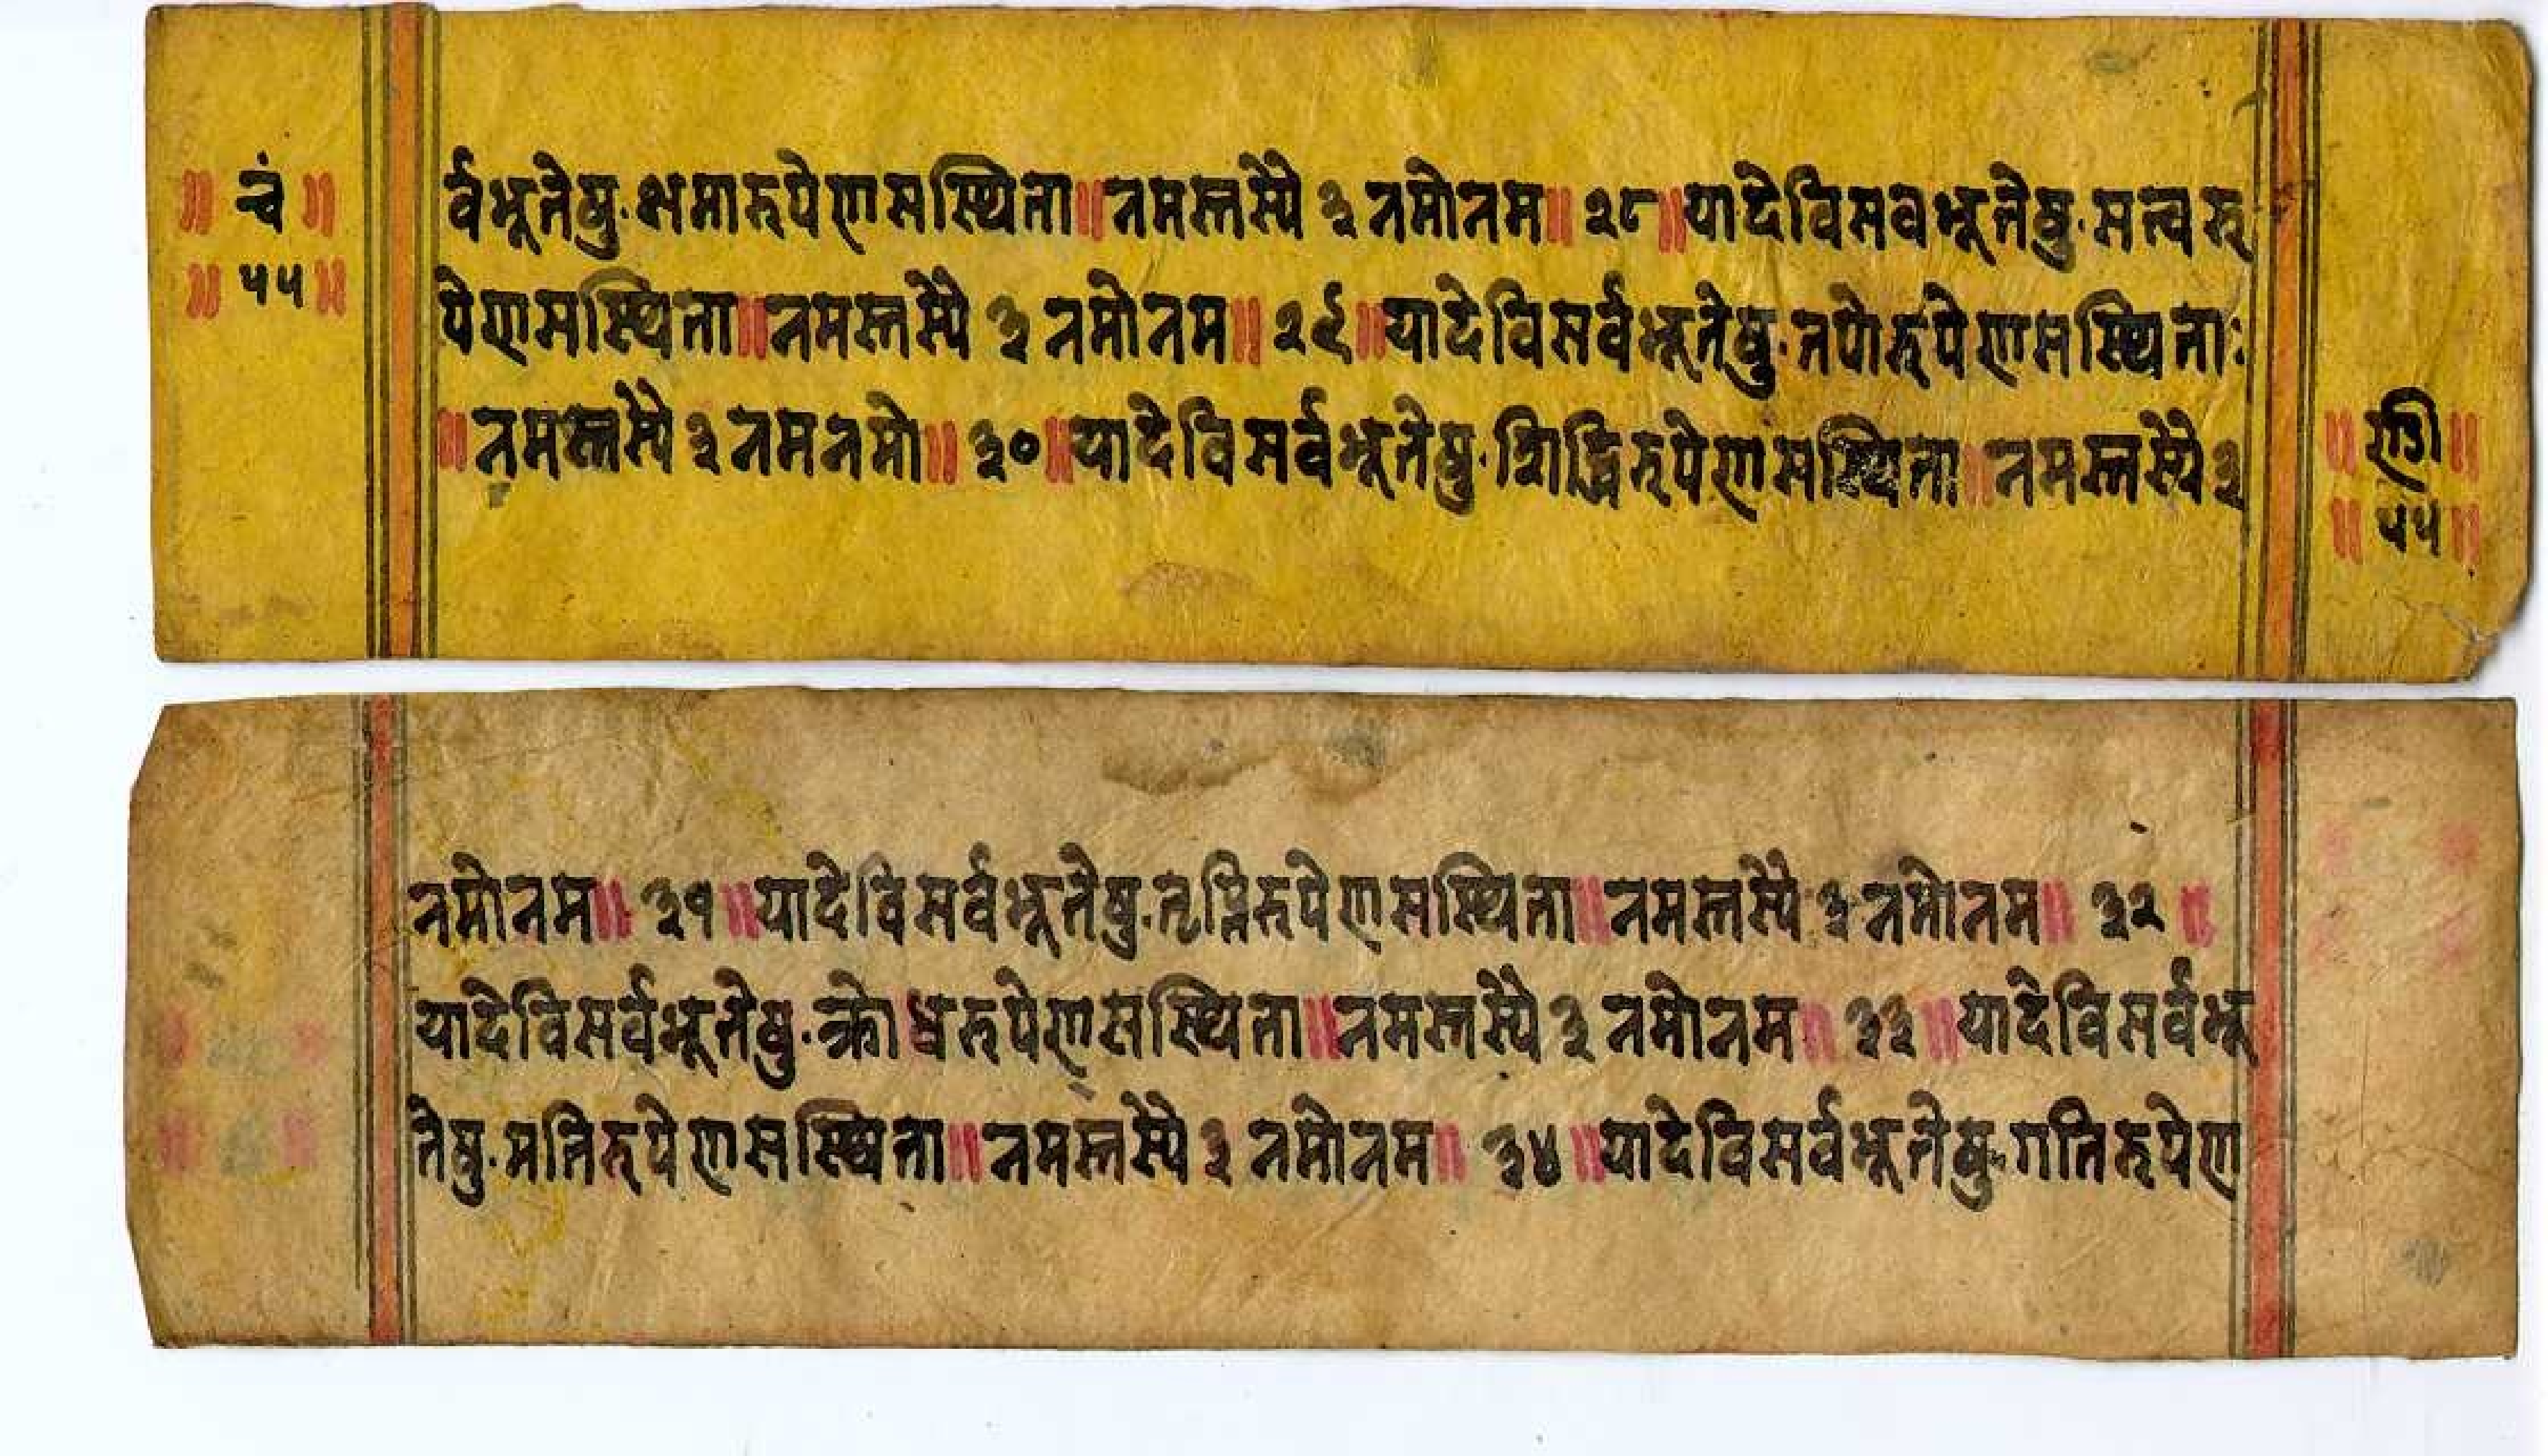 ॥ चं ॥
॥ ५५ ॥
र्वभूतेषु·क्षमारुपेणसस्थिता॥नमस्तस्यै ३ नमोनम॥ २८॥यादेविसवभूतेषु·सत्वरु
पेणसस्थिता॥नमस्तस्यै ३ नमोनम॥ २९॥यादेविसर्वभूतेषु·तपोरुपेणसस्थिताः
॥नमस्तस्यै ३ नमनमो॥ ३०॥यादेविसर्वभूतेषु·शिद्धिरुपेणसस्थिता॥नमस्तस्यै ३
॥ ण्डी ॥
॥ ५५ ॥
नमोनम॥ ३१॥यादेविसर्वभूतेषु·तृप्तिरुपेणसस्थिता॥नमस्तस्यै ३ नमोनम॥ ३२॥
यादेविसर्वभूतेषु·क्रोधरुपेणसस्थिता॥नमस्तस्यै ३ नमोनम॥ ३३॥यादेविसर्वभू
तेषु·मतिरुपेणसस्थिता॥नमस्तस्यै ३ नमोनम॥ ३४॥यादेविसर्वभूतेषु·गतिरुपेण